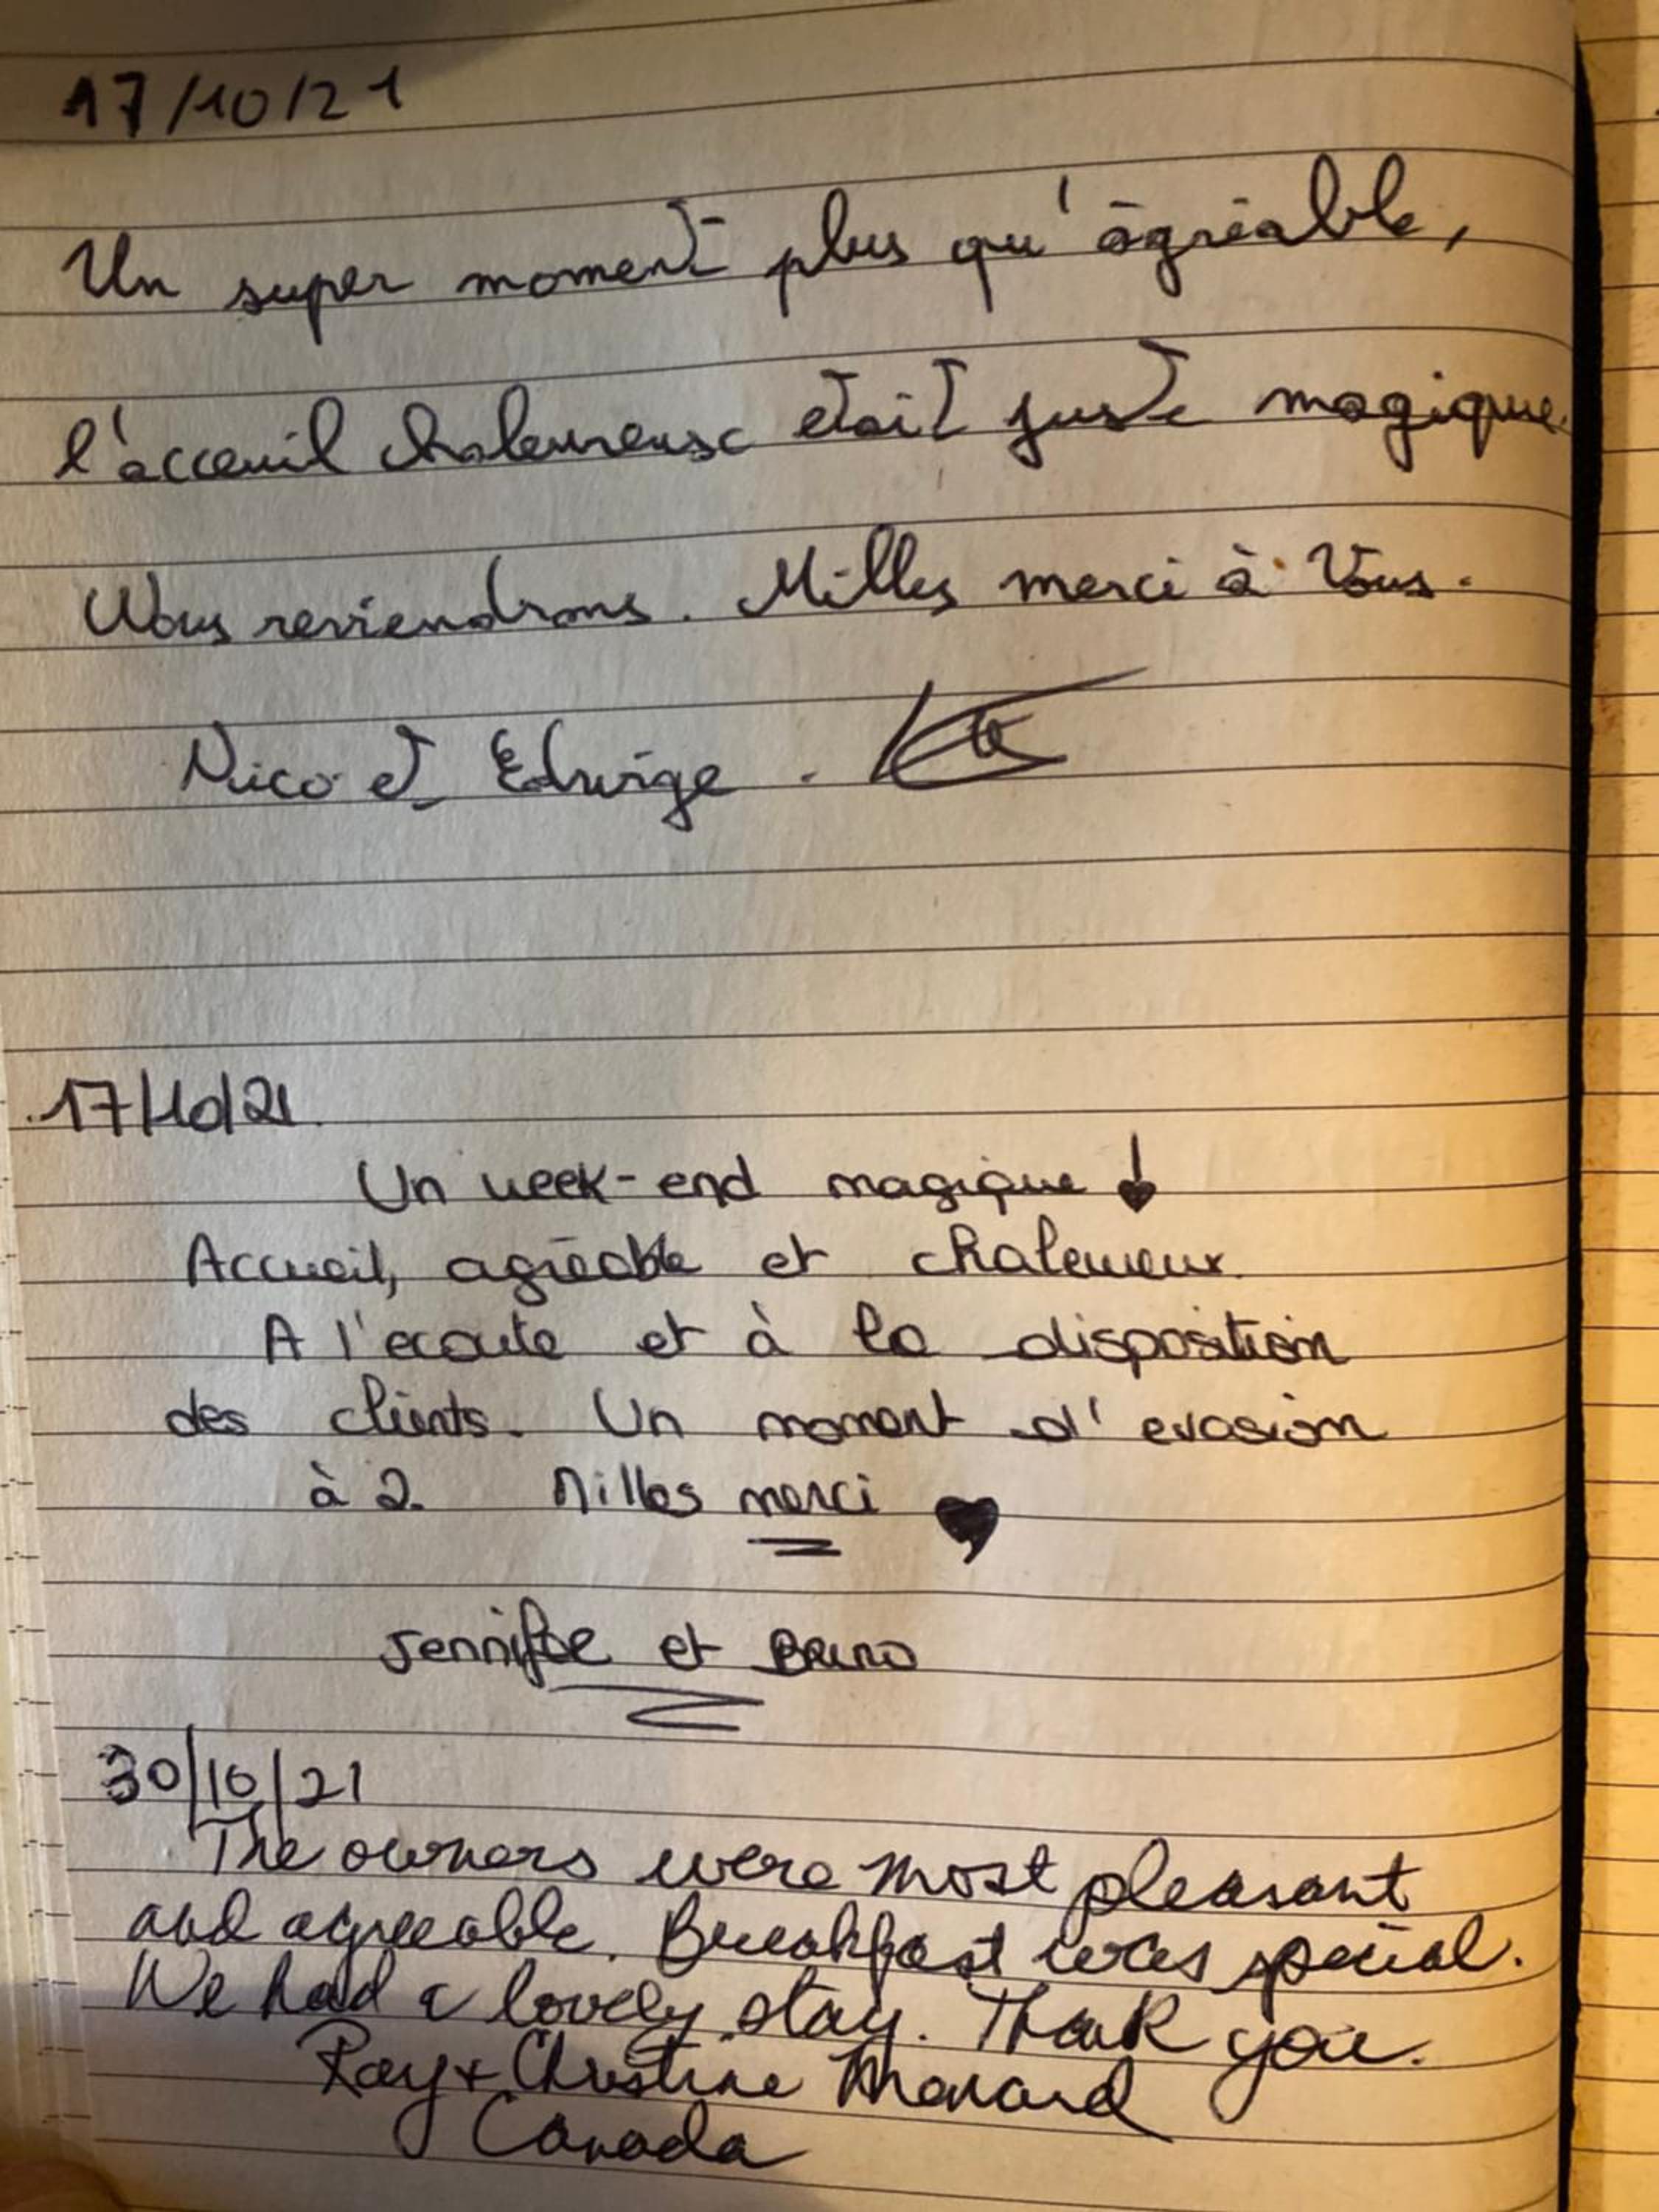 17/10/21
Un super moment plus qu'agréable,
l'acceuil chaleureuse etait juste magique.
Nous reviendrons. Milles merci à Vous.
Nico et Edwige.
17/10/21
Un week-end magique !
Accueil, agréable et chaleureux.
A l'ecoute et à la disposition
des clients. Un moment d'evasion
à 2. Milles merci
Jennifer et Bruno
30/10/21
The owners were most pleasant
and agreeable. Breakfast was special.
We had a lovely stay. Thank you.
Ray + Christine Menard
Canada